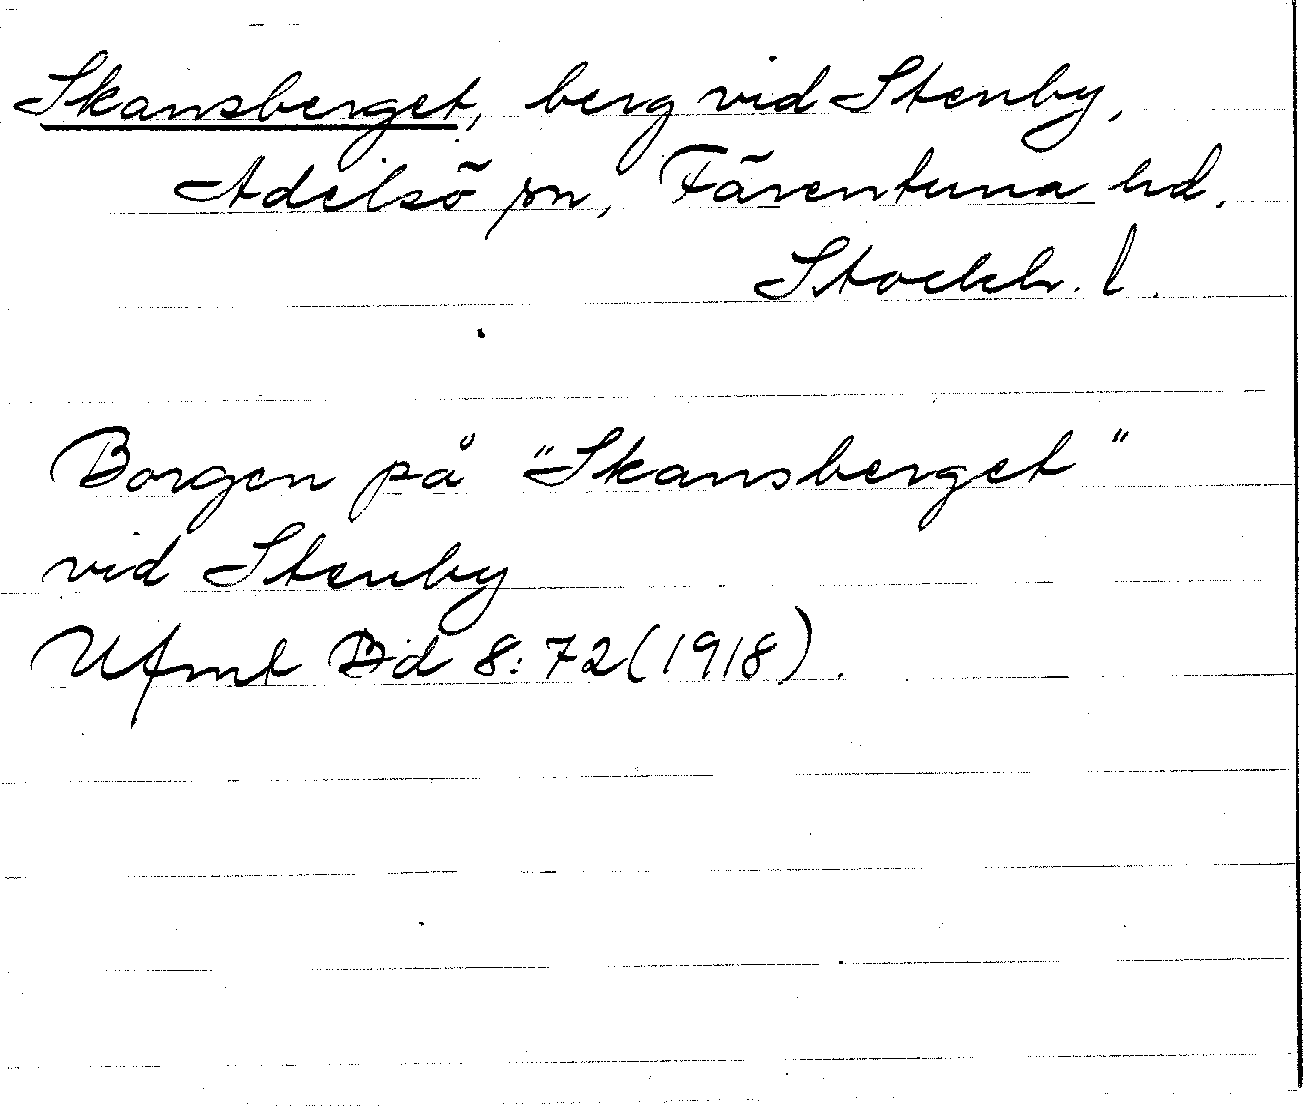 Skansberget, berg vid Stenby,
Adelsö sn, Färentuna hd.
Stockh. l.
Borgen på "Skansberget"
vid Stenby
Ufmt Bd 8:72 (1918).